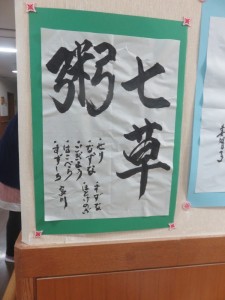 七草
粥
・せり
・なずな ・すずな
・ごぎょう ・ほとけのざ
・はこべら
・すずしろ